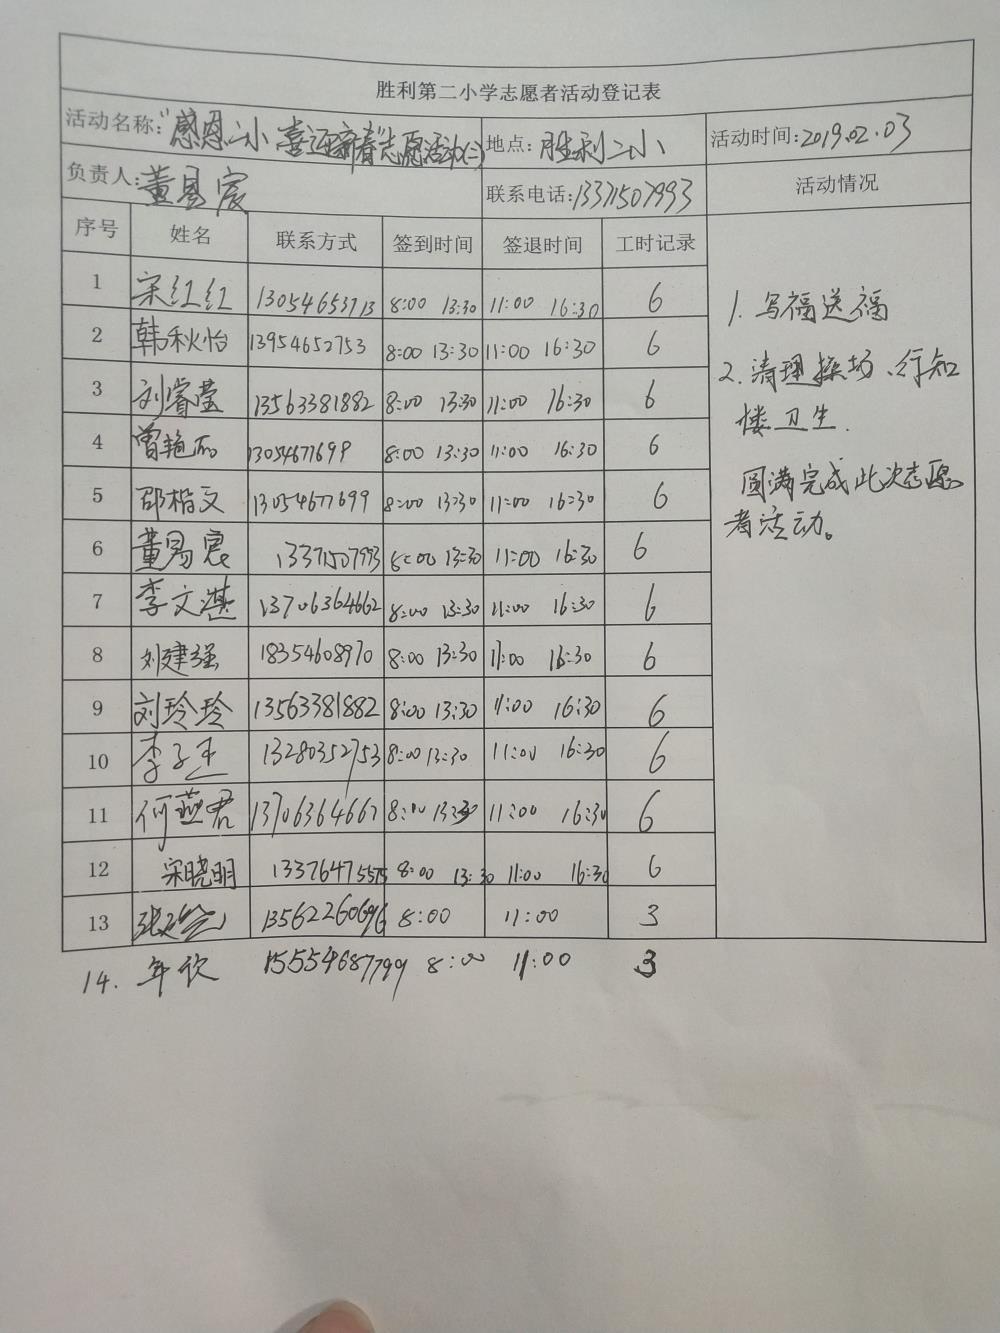 胜利第二小学志愿者活动登记表
活动名称:“感恩二小 喜迎新春”志愿活动(二) 地点: 胜利二小 活动时间:2019.02.03
负责人:董易宸 联系电话:13371507993 活动情况
序号 姓名 联系方式 签到时间 签退时间 工时记录
1 宋红红 13054653713 8:00 13:30 11:00 16:30 6
2 韩秋怡 13954652753 8:00 13:30 11:00 16:30 6
3 刘睿莹 13563381882 8:00 13:30 11:00 16:30 6
4 曾艳 13054677699 8:00 13:30 11:00 16:30 6
5 邵楷文 13054677699 8:00 13:30 11:00 16:30 6
6 董易宸 13371507993 8:00 13:30 11:00 16:30 6
7 李文湛 13706364662 8:00 13:30 11:00 16:30 6
8 刘建强 18354608970 8:00 13:30 11:00 16:30 6
9 刘玲玲 13563381882 8:00 13:30 11:00 16:30 6
10 李子 13280352753 8:00 13:30 11:00 16:30 6
11 何燕君 13706364662 8:00 13:30 11:00 16:30 6
12 宋晓明 13376475575 8:00 13:30 11:00 16:30 6
13 8:00 11:00 3
14. 年欣 15554687799 8:00 11:00 3
1. 写福送福
2. 清理操场、行知
楼卫生.
圆满完成此次志愿
者活动。